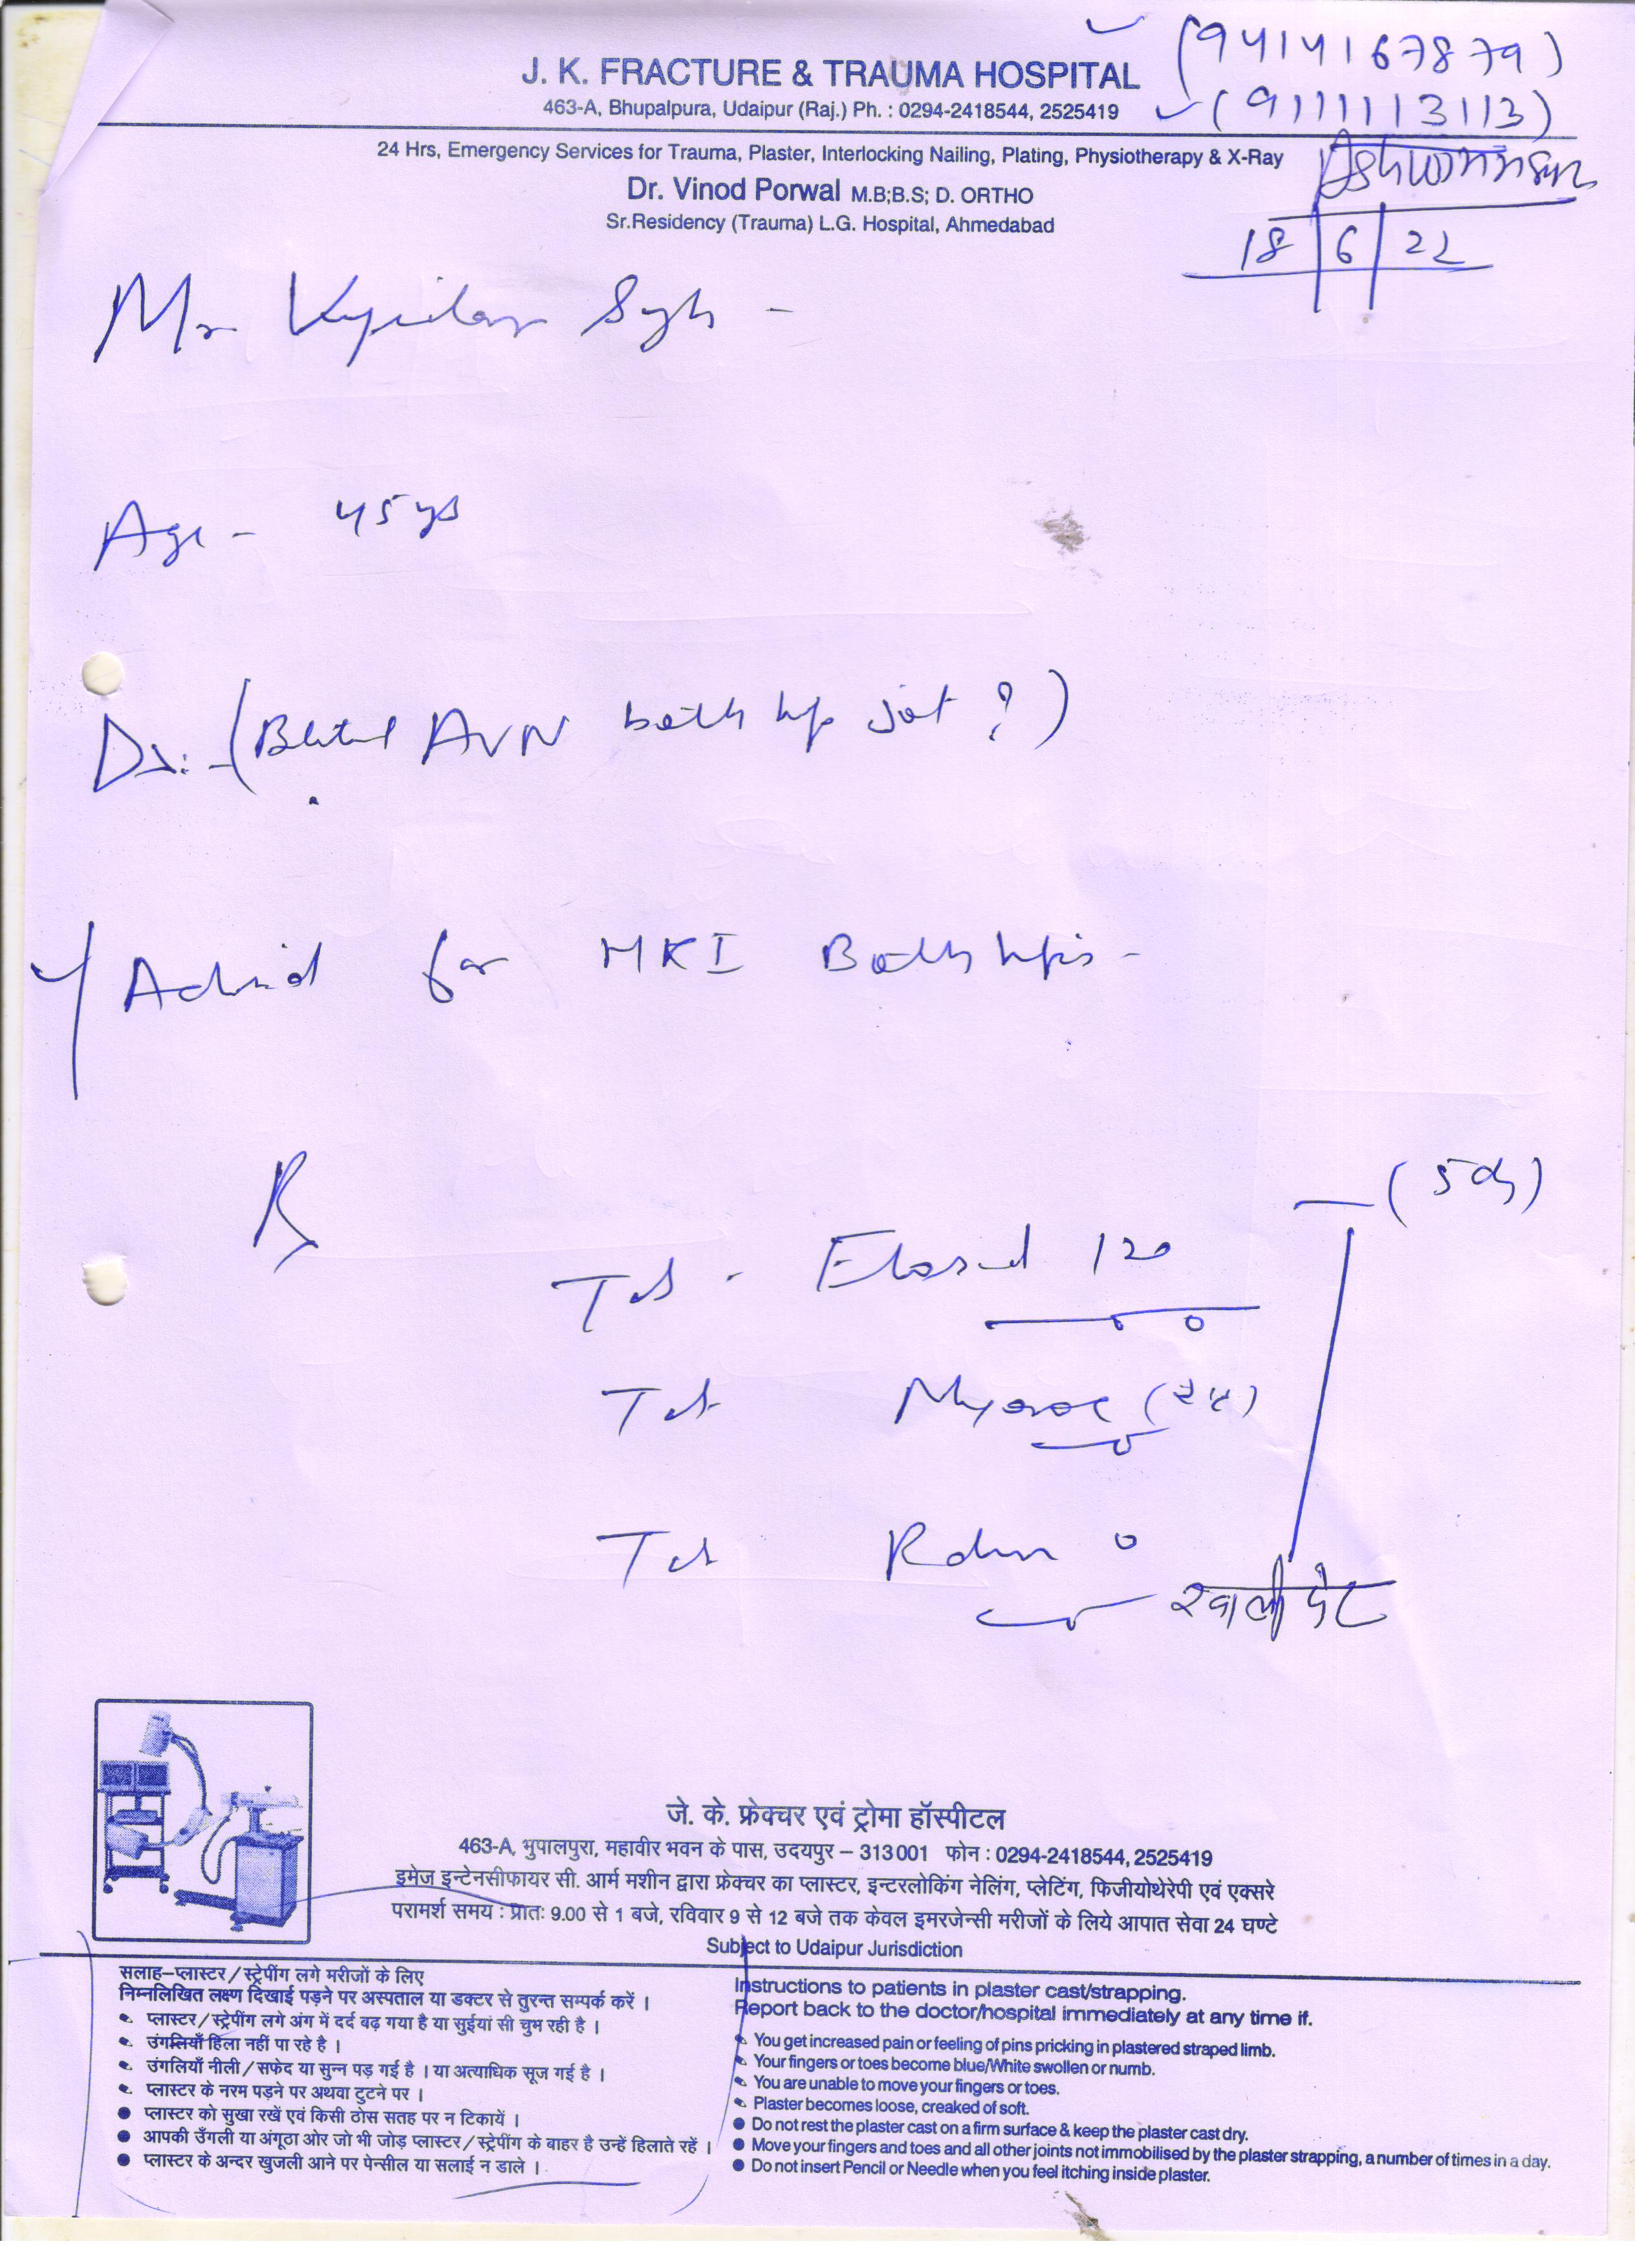 (9414167879)
J. K. FRACTURE & TRAUMA HOSPITAL
(9111113113)
463-A, Bhupalpura, Udaipur (Raj.) Ph. : 0294-2418544, 2525419
24 Hrs, Emergency Services for Trauma, Plaster, Interlocking Nailing, Plating, Physiotherapy & X-Ray
Dr. Vinod Porwal M.B;B.S; D. ORTHO
Sr.Residency (Trauma) L.G. Hospital, Ahmedabad
18 | 6 | 22
Mr
Age - 45 ys
(AVN both hip ?)
for Both hips -
(5 d)
Tab 120
Tab
Tab
खाली पेट
जे. के. फ्रेक्चर एवं ट्रोमा हॉस्पीटल
463-A, भुपालपुरा, महावीर भवन के पास, उदयपुर – 313001 फोन : 0294-2418544, 2525419
इमेज इन्टेनसीफायर सी. आर्म मशीन द्वारा फ्रेक्चर का प्लास्टर, इन्टरलोकिंग नेलिंग, प्लेटिंग, फिजीयोथेरेपी एवं एक्सरे
परामर्श समय : प्रातः 9.00 से 1 बजे, रविवार 9 से 12 बजे तक केवल इमरजेन्सी मरीजों के लिये आपात सेवा 24 घण्टे
Subject to Udaipur Jurisdiction
सलाह–प्लास्टर/स्ट्रेपींग लगे मरीजों के लिए
निम्नलिखित लक्ष्ण दिखाई पड़ने पर अस्पताल या डक्टर से तुरन्त सम्पर्क करें ।
प्लास्टर/स्ट्रेपींग लगे अंग में दर्द बढ़ गया है या सुईयां सी चुभ रही है ।
उंगलियाँ हिला नहीं पा रहे है ।
उंगलियाँ नीली/सफेद या सुन्न पड़ गई है । या अत्याधिक सूज गई है ।
प्लास्टर के नरम पड़ने पर अथवा टुटने पर ।
● प्लास्टर को सुखा रखें एवं किसी ठोस सतह पर न टिकायें ।
● आपकी उँगली या अंगूठा ओर जो भी जोड़ प्लास्टर/स्ट्रेपींग के बाहर है उन्हें हिलाते रहें ।
● प्लास्टर के अन्दर खुजली आने पर पेन्सील या सलाई न डाले ।
Instructions to patients in plaster cast/strapping.
Report back to the doctor/hospital immediately at any time if.
You get increased pain or feeling of pins pricking in plastered straped limb.
Your fingers or toes become blue/White swollen or numb.
You are unable to move your fingers or toes.
Plaster becomes loose, creaked of soft.
● Do not rest the plaster cast on a firm surface & keep the plaster cast dry.
● Move your fingers and toes and all other joints not immobilised by the plaster strapping, a number of times in a day.
● Do not insert Pencil or Needle when you feel itching inside plaster.